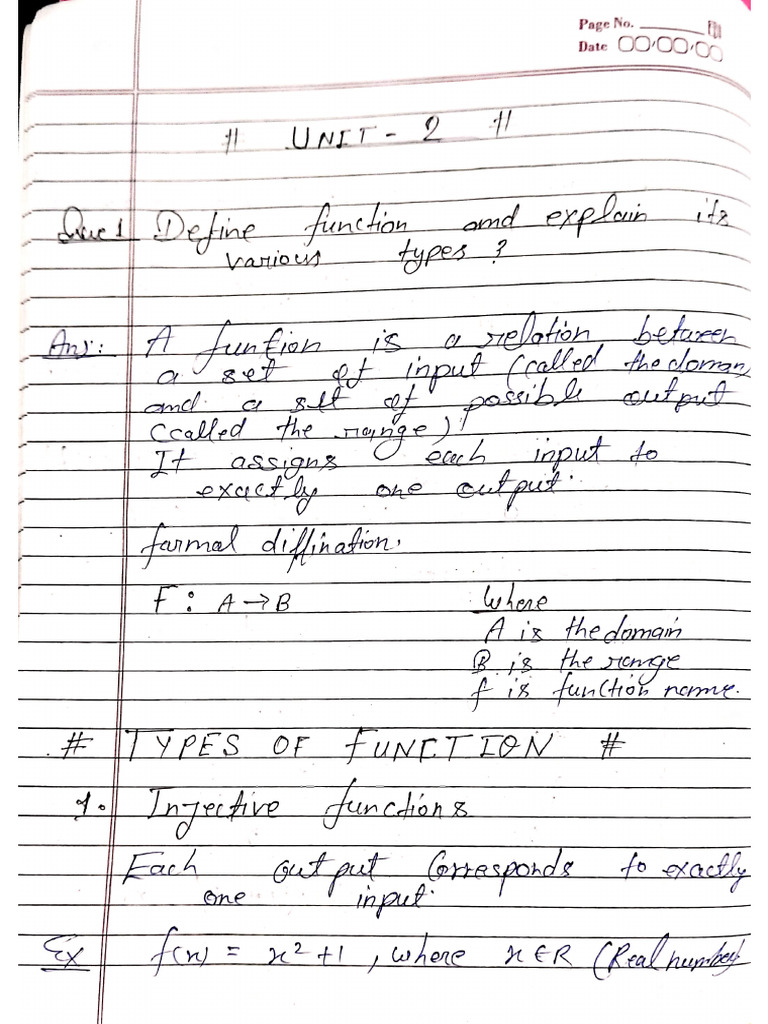 Page No.
Date
# UNIT - 2 #
Que 1 Define function and explain its
various types ?
Ans: A funtion is a relation between
a set of input (called the domain,
and a set of possible output
(called the range)
It assigns each input to
exactly one output.
farmal diffination.
F : A → B Where
A is the domain
B is the range
f is function name.
# TYPES OF FUNCTION #
1. Injective functions
Each output Corresponds to exactly
one input.
Ex f(x) = x² + 1 , where x ∈ R (Real number)